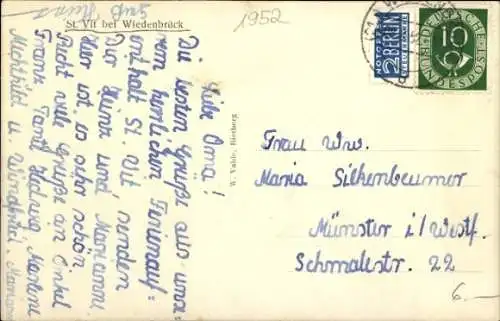 St. Vit bei Wiedenbrück
1952
Liebe Oma!
Die besten Grüße aus unse=
rem herrlichen Ferienauf=
enthalt St. Vit senden
Dir Heinz und Marianne.
Hier ist es sehr schön
Recht viele Grüße an Onkel
Franz Tante Hedwig Marlene
Mechthild u Winfried.
W. Vahle, Rietberg
NOTOPFER
2 BERLIN
STEUERMARKE
DEUTSCHE
BUNDESPOST
10
Frau Ww.
Maria Silkenbeumer
Münster i/Westf.
Schmalestr. 22
6.-